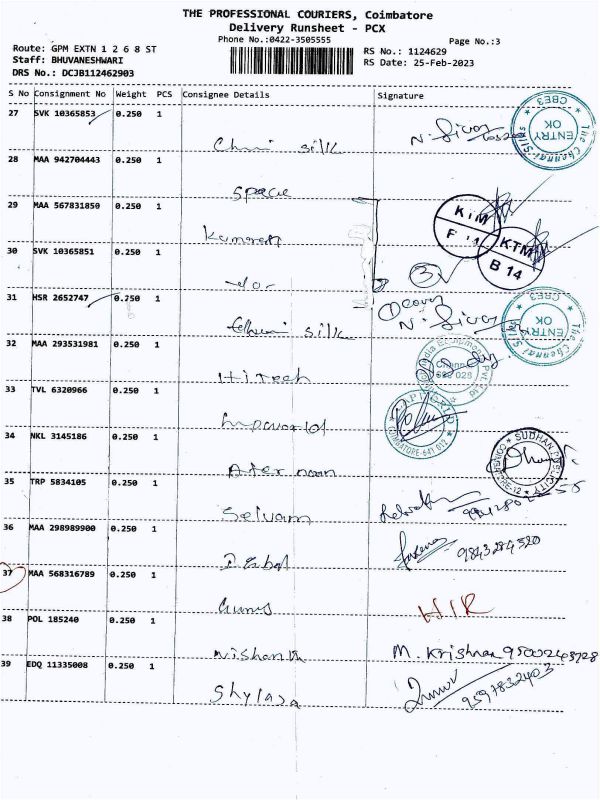 THE PROFESSIONAL COURIERS, Coimbatore
Delivery Runsheet - PCX
Phone No.:0422-3505555
Page No.:3
Route: GPM EXTN 1 2 6 8 ST
Staff: BHUVANESHWARI
DRS No.: DCJB112462903
RS No.: 1124629
RS Date: 25-Feb-2023
S No Consignment No Weight PCS Consignee Details Signature
27 SVK 10365853 0.250 1
silk N. Siva
The Chennai Silks ENTRY OK CBE3
28 MAA 942704443 0.250 1
space
29 MAA 567831850 0.250 1
KTM
F 14
30 SVK 10365851 0.250 1
KTM
B 14
-do-
3
31 HSR 2652747 0.250 1
1 cover
silk N. Siva
The Chennai Silks ENTRY OK CBE3
32 MAA 293531981 0.250 1
Hitech
33 TVL 6320966 0.250 1
COIMBATORE-641 012
34 NKL 3145186 0.250 1
SUDHAN PUBLICITY
35 TRP 5834105 0.250 1
Selvam
36 MAA 298989900 0.250 1
9843284520
37 MAA 568316789 0.250 1
HIR
38 POL 185240 0.250 1
Nishanth M. Krishnan
39 EDQ 11335008 0.250 1
Shylaja 9597832403